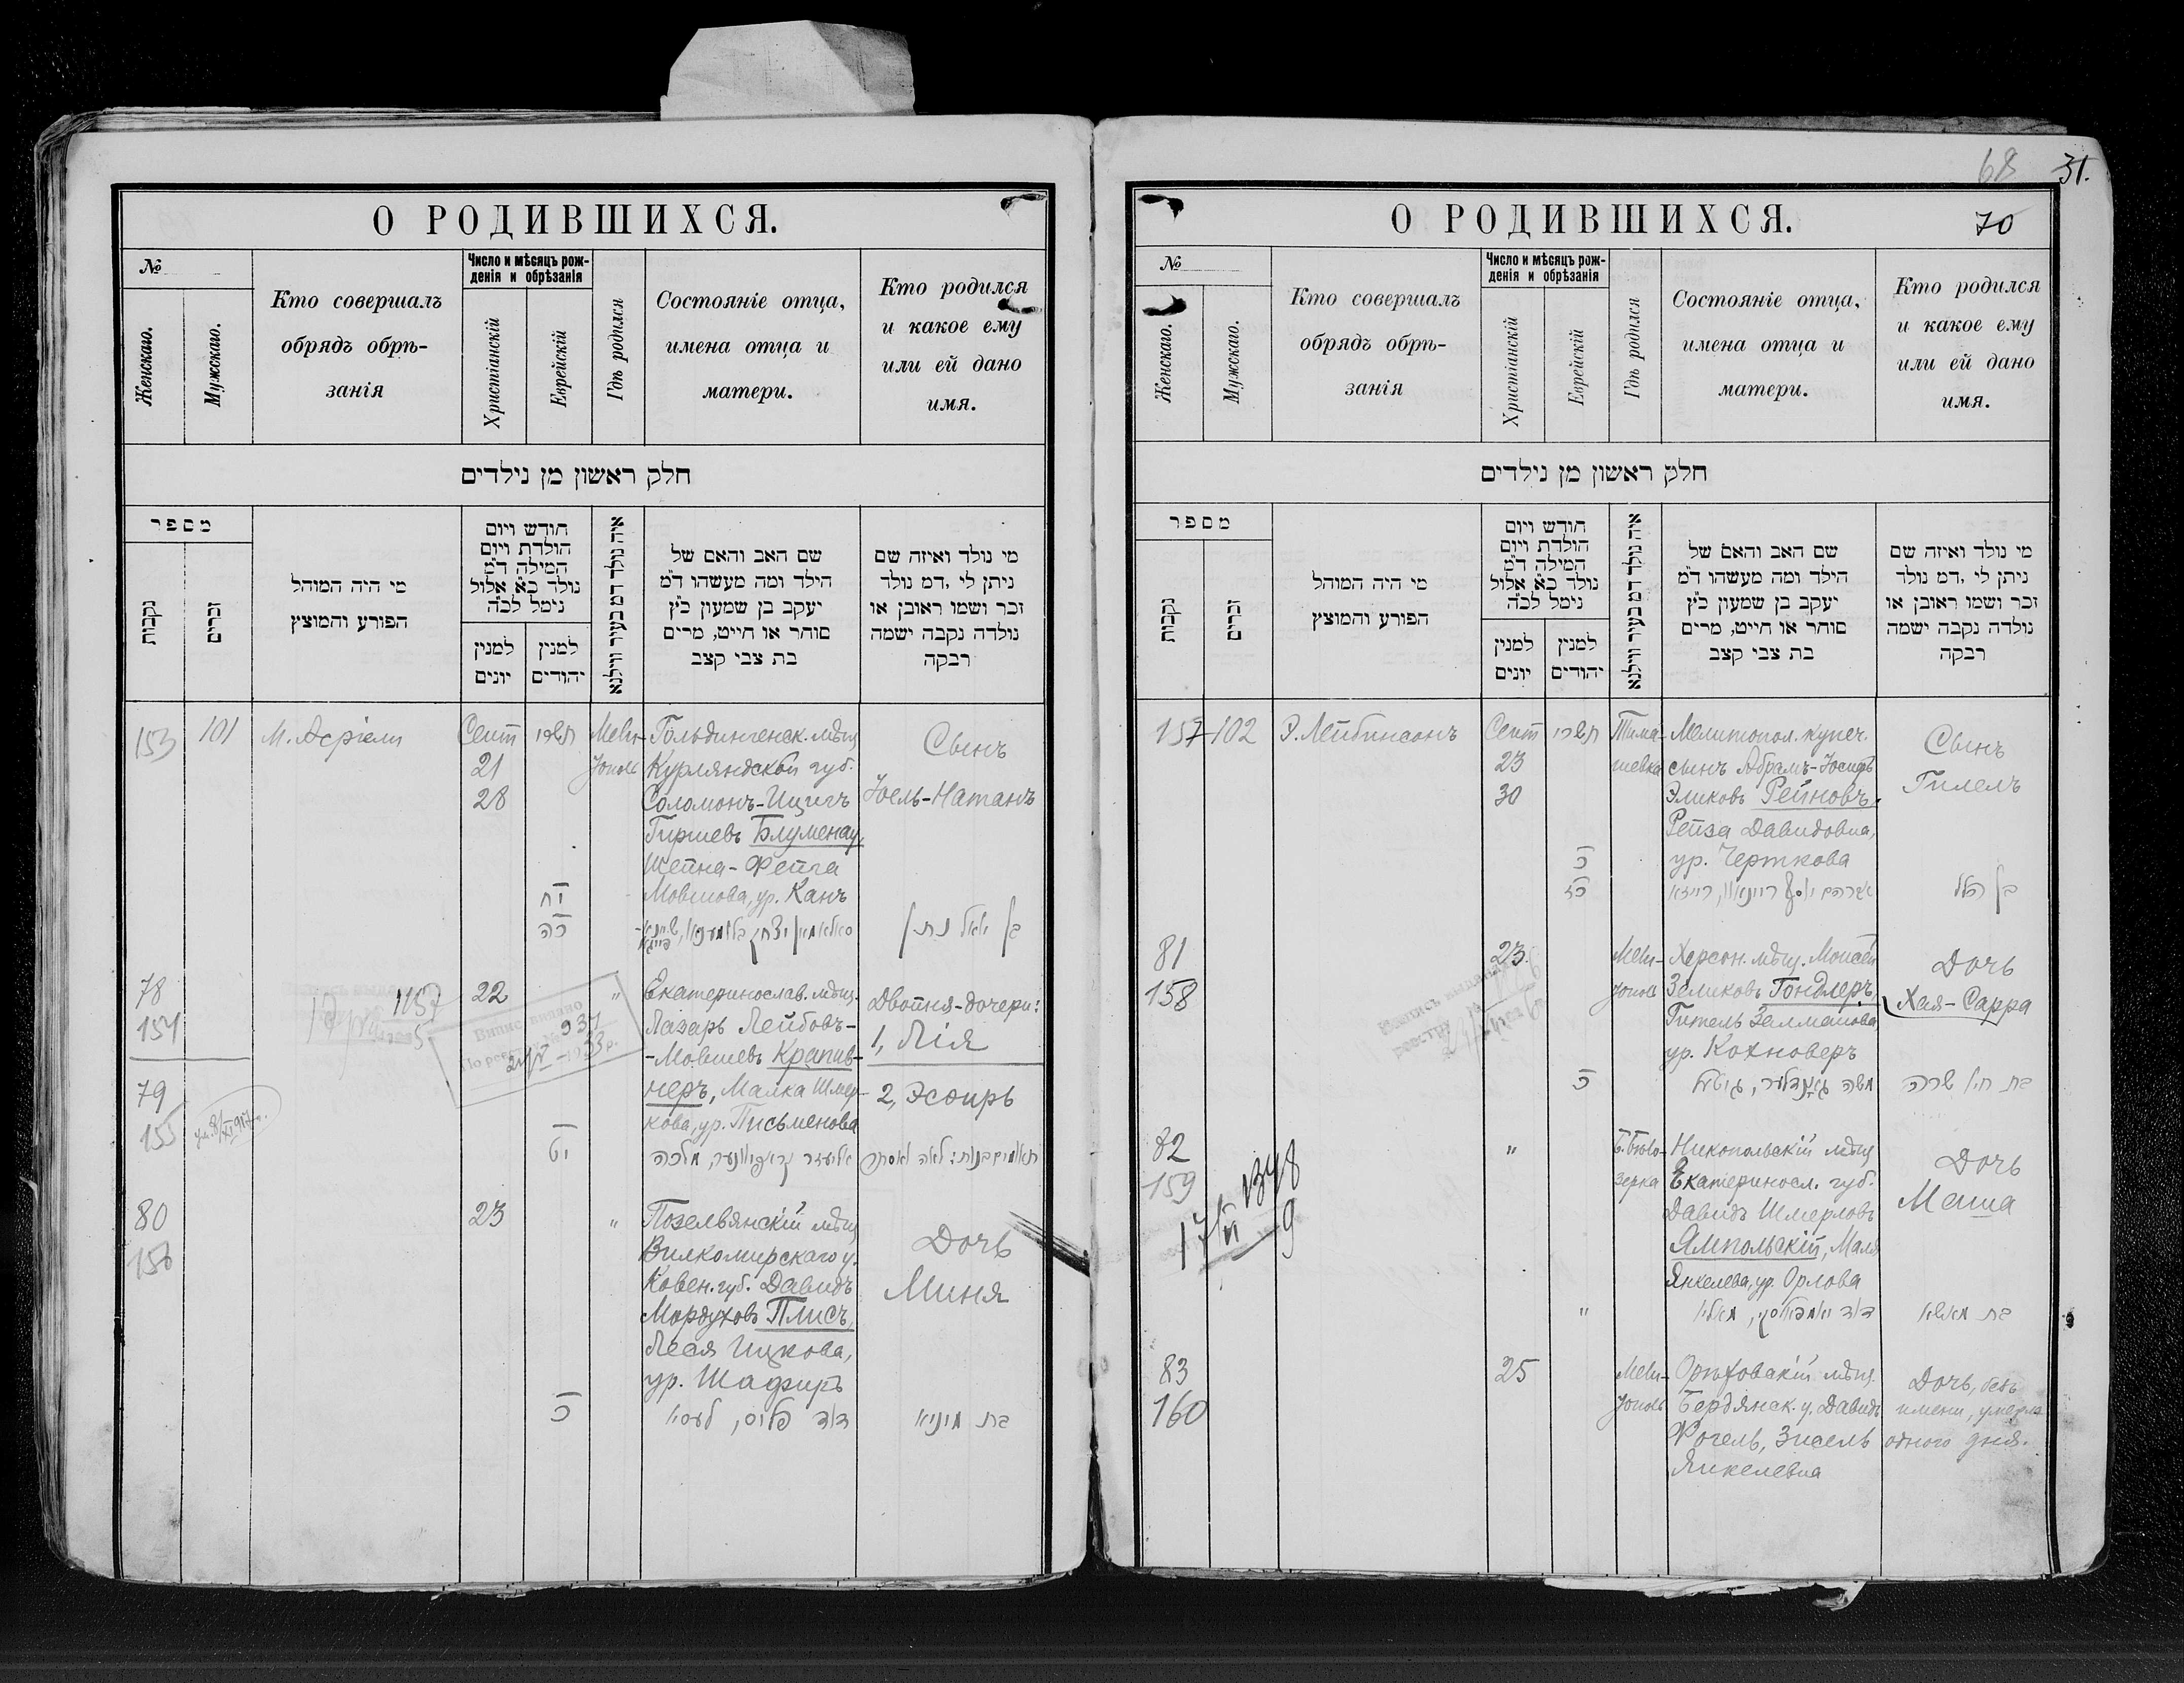 О РОДИВШИХСЯ.
№
Женскаго.
Мужскаго.
Кто совершалъ
обрядъ обрѣ-
занія
Число и мѣсяцъ рож-
денія и обрѣзанія
Христіанскій
Еврейскій
Гдѣ родился
Состояніе отца,
имена отца и
матери.
Кто родился
и какое ему
или ей дано
имя.
חלק ראשון מן נילדים
מספר
נקבות
זכרים
מי היה המוהל
הפורע והמוצץ
חודש ויום
הולדת ויום
המילה ד״מ
נולד כא אלול
נימל לכ״ה
למנין
יונים
למנין
יהודים
איה נולד דמ בעיר ווילנא
שם האב והאם של
הילד ומה מעשהו ד״מ
יעקב בן שמעון כ״ץ
סוחר או חייט, מרים
בת צבי קצב
מי נולד ואיזה שם
ניתן לי ,דמ נולד
זכר ושמו ראובן או
נולדה נקבה ישמה
רבקה
153
101
М. Асріели
Сент
21
28
תשרי
יח
כה
Мели-
тополь
Гольдингенск. мѣщ
Курляндской губ.
Соломонъ-Ицигъ
Гиршевъ Блуменау,
Шейна-Фейга
Мовшова, ур. Канъ
Сынъ
Іоель-Натанъ
בן יואל נתן
78
154
1157
22
"
Екатеринослав. мѣщ.
Лазарь Лейбовъ-
-Мовшевъ Крапив-
неръ, Малка Шмер-
кова, ур. Письменова
Двойня-дочери:
1, Лія
2, Эсѳирь
79
155
יט
Випис видано
По реестру № 937
תאומים בנות: לאה ואסתר
80
156
23
"
Позельвянскій мѣщ
Вилкомирскаго у.
Ковен. губ. Давидъ
Мордуховъ Плисъ,
Леся Ицкова,
ур. Шафиръ
כ
דוד פליס, לעסיא
Дочь
Миня
בת מיניא
68
31.
О РОДИВШИХСЯ.
70
№
Женскаго.
Мужскаго.
Кто совершалъ
обрядъ обрѣ-
занія
Число и мѣсяцъ рож-
денія и обрѣзанія
Христіанскій
Еврейскій
Гдѣ родился
Состояніе отца,
имена отца и
матери.
Кто родился
и какое ему
или ей дано
имя.
חלק ראשון מן נילדים
מספר
נקבות
זכרים
מי היה המוהל
הפורע והמוצץ
חודש ויום
הולדת ויום
המילה ד״מ
נולד כא אלול
נימל לכ״ה
למנין
יונים
למנין
יהודים
איה נולד דמ בעיר ווילנא
שם האב והאם של
הילד ומה מעשהו ד״מ
יעקב בן שמעון כ״ץ
סוחר או חייט, מרים
בת צבי קצב
מי נולד ואיזה שם
ניתן לי ,דמ נולד
זכר ושמו ראובן או
נולדה נקבה ישמה
רבקה
157
102
Э. Лейбинсонъ
Сент
23
30
תשרי
כ
כז
Тима-
шевка
Мелитопол. купеч.
сынъ Абрамъ-Іосифъ
Эликовъ Рейновъ,
Рейза Давидовна,
ур. Черткова
Сынъ
Гилель
בן הלל
81
158
23.
כ
Мели-
тополь
Херсон. мѣщ. Моисей
Зеликовъ Гондлеръ,
Гитель Залманова
ур. Кохноверъ
משה גאנדלער, גיטעל
Дочь
Хая-Сарра
בת חיה שרה
82
159
1348
"
"
Б. Бѣло-
зерка
Никопольскій мѣщ
Екатериносл. губ.
Давидъ Шмерловъ
Ямпольскій, Маля
Янкелева, ур. Орлова
דוד יאמפולסקי, מאליא
Дочь
Маша
בת מאשא
83
160
25
Мели-
тополь
Орѣховскій мѣщ.
Бердянск. у. Давидъ
Фогель, Зисель
Янкелевна
Дочь, безъ
имени, умерла
одного дня.